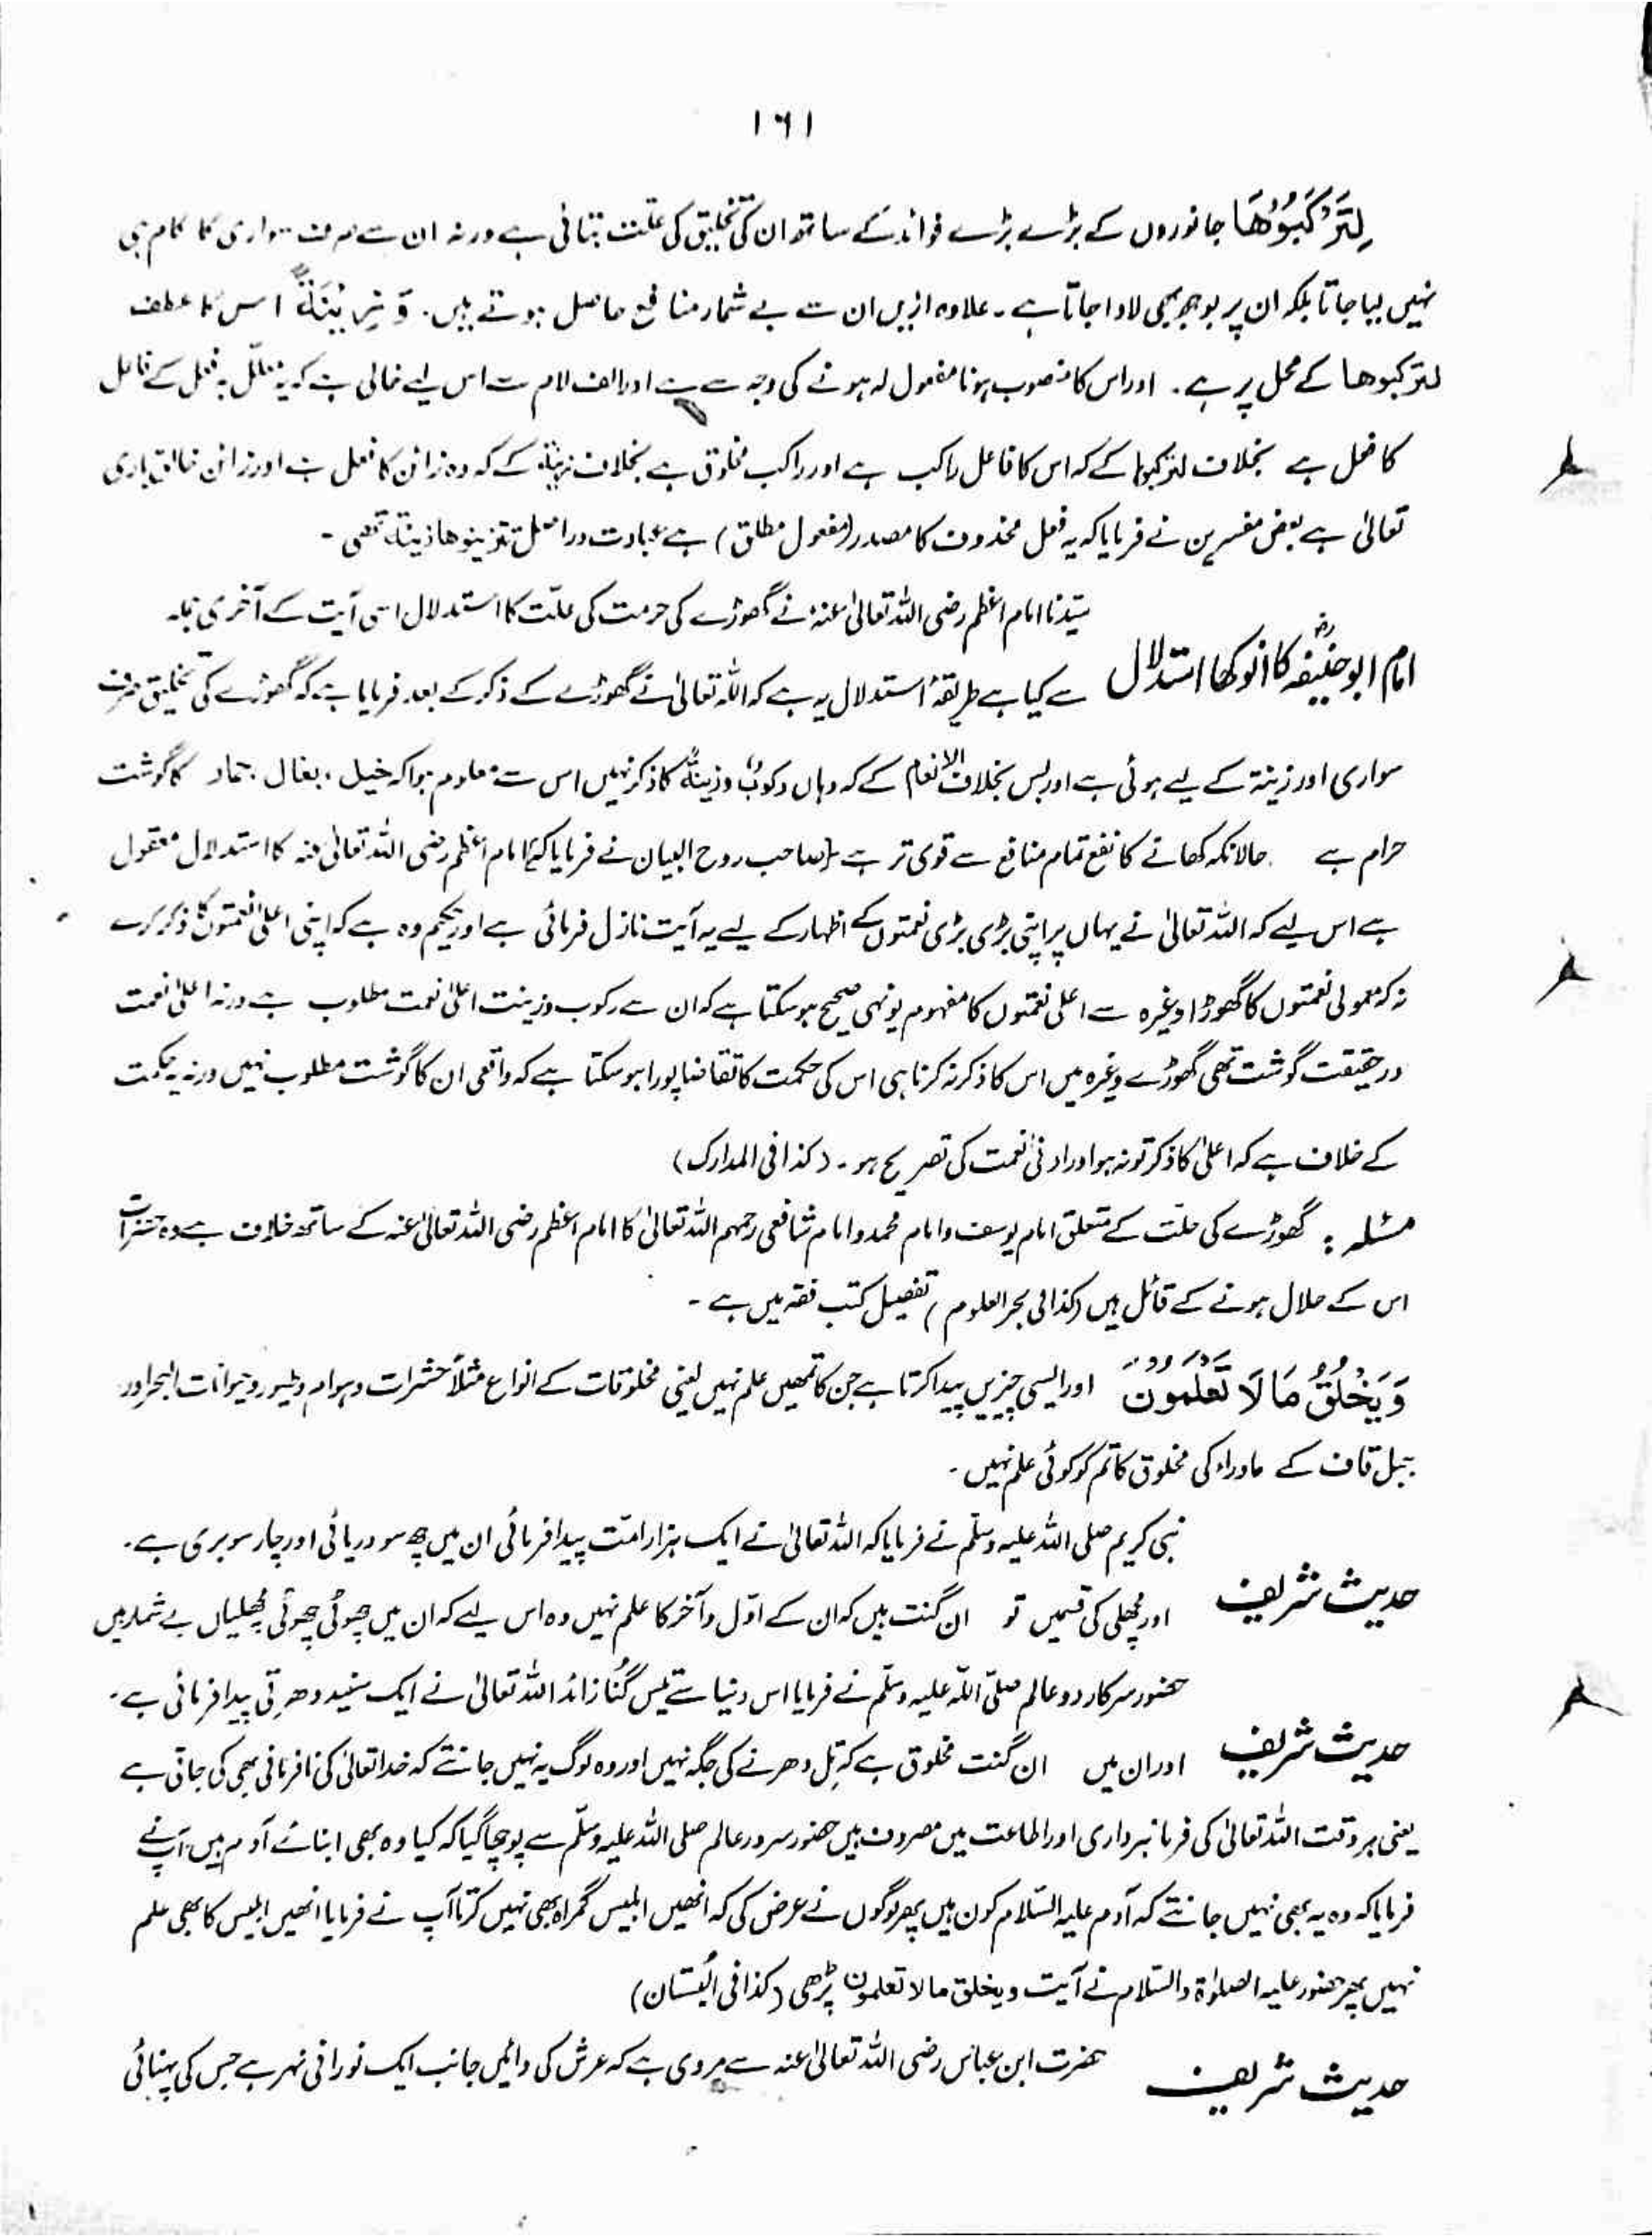 ۱۶۱
لِتَرْكَبُوْهَا جانوروں کے بڑے بڑے فوائد کے ساتھ ان کی تخلیق کی علّت بتائی ہے ورنہ ان سے صرف سواری کا کام ہی
نہیں لیا جاتا بلکہ ان پر بوجھ بھی لادا جاتا ہے۔ علاوہ ازیں ان سے بے شمار منافع حاصل ہوتے ہیں۔ وَ زِيْنَةً اس کا عطف
لترکبوھا کے محل پر ہے۔ اور اس کا منصوب ہونا مفعول لہ ہونے کی وجہ سے ہے اور الف لام سے اس لیے خالی ہے کہ یہ معلّل بہ فعل کے فاعل
کا فعل ہے بخلاف لترکبوا کے کہ اس کا فاعل راکب ہے اور راکب مخلوق ہے بخلاف زینۃ کے کہ وہ زائن کا فعل ہے اور زائن خالق باری
تعالیٰ ہے بعض مفسرین نے فرمایا کہ یہ فعل محذوف کا مصدر (مفعول مطلق) ہے عبارت دراصل تتزینوھا زینۃ تھی۔
سیّدنا امام اعظم رضی اللہ تعالیٰ عنہٗ نے گھوڑے کی حرمت کی علّت کا استدلال اسی آیت کے آخری جملہ
امام ابو حنیفہ رض کا انوکھا استدلال سے کیا ہے طریقۂ استدلال یہ ہے کہ اللہ تعالیٰ نے گھوڑے کے ذکر کے بعد فرمایا ہے کہ گھوڑے کی تخلیق صرف
سواری اور زینۃ کے لیے ہوئی ہے اور بس بخلاف الانعام کے کہ وہاں رکوب وزینۃ کا ذکر نہیں اس سے معلوم ہوا کہ خیل، بغال، حمار کا گوشت
حرام ہے حالانکہ کھانے کا نفع تمام منافع سے قوی تر ہے (صاحب روح البیان نے فرمایا کہ) امام اعظم رضی اللہ تعالیٰ عنہ کا استدلال معقول
ہے اس لیے کہ اللہ تعالیٰ نے یہاں پر اپنی بڑی بڑی نعمتوں کے اظہار کے لیے یہ آیت نازل فرمائی ہے اور حکیم وہ ہے کہ اپنی اعلیٰ نعمتوں کا ذکر کرے
نہ کہ معمولی نعمتوں کا گھوڑا وغیرہ سے اعلیٰ نعمتوں کا مفہوم یونہی صحیح ہو سکتا ہے کہ ان سے رکوب وزینت اعلیٰ نعمت مطلوب ہے ورنہ اعلیٰ نعمت
درحقیقت گوشت تھی گھوڑے وغیرہ میں اس کا ذکر نہ کرنا ہی اس کی حکمت کا تقاضا پورا ہو سکتا ہے کہ واقعی ان کا گوشت مطلوب نہیں ورنہ یہ حکمت
کے خلاف ہے کہ اعلیٰ کا ذکر تو نہ ہو اور ادنیٰ نعمت کی تصریح ہو۔ (کذا فی المدارک)
مسئلہ : گھوڑے کی حلّت کے متعلق امام یوسف و امام محمد و امام شافعی رحمہم اللہ تعالیٰ کا امام اعظم رضی اللہ تعالیٰ عنہ کے ساتھ خلاف ہے وہ حضرات
اس کے حلال ہونے کے قائل ہیں (کذا فی بحر العلوم) تفصیل کتب فقہ میں ہے۔
وَيَخْلُقُ مَا لَا تَعْلَمُوْنَ اور ایسی چیزیں پیدا کرتا ہے جن کا تمھیں علم نہیں یعنی مخلوقات کے انواع مثلاً حشرات و ہوام و طیور و حیوانات البحر اور
جبل قاف کے ماوراء کی مخلوق کا تم کو کوئی علم نہیں۔
نبی کریم صلی اللہ علیہ وسلّم نے فرمایا کہ اللہ تعالیٰ نے ایک ہزار امّت پیدا فرمائی ان میں چھ سو دریائی اور چار سو بری ہے۔
حدیث شریف اور مچھلی کی قسمیں تو ان گنت ہیں کہ ان کے اوّل و آخر کا علم نہیں وہ اس لیے کہ ان میں چھوٹی چھوٹی مچھلیاں بے شمار ہیں
حضور سرکار دو عالم صلّی اللہ علیہ وسلّم نے فرمایا اس دنیا سے تیس گُنا زائد اللہ تعالیٰ نے ایک سفید دھرتی پیدا فرمائی ہے۔
حدیث شریف اور ان میں ان گنت مخلوق ہے کہ تِل دھرنے کی جگہ نہیں اور وہ لوگ یہ نہیں جانتے کہ خدا تعالیٰ کی نافرمانی بھی کی جاتی ہے
یعنی ہر وقت اللہ تعالیٰ کی فرمانبرداری اور اطاعت میں مصروف ہیں حضور سرور عالم صلی اللہ علیہ وسلّم سے پوچھا گیا کہ کیا وہ بھی ابنائے آدم ہیں آپ نے
فرمایا کہ وہ یہ بھی نہیں جانتے کہ آدم علیہ السّلام کون ہیں پھر لوگوں نے عرض کی کہ انھیں ابلیس گمراہ بھی نہیں کرتا آپ نے فرمایا انھیں ابلیس کا بھی علم
نہیں پھر حضور علیہ الصلوٰۃ والسّلام نے آیت ویخلق مالا تعلمون پڑھی (کذا فی البُستان)
حضرت ابن عباس رضی اللہ تعالیٰ عنہ سے مروی ہے کہ عرش کی دائیں جانب ایک نورانی نہر ہے جس کی پہنائی
حدیث شریف